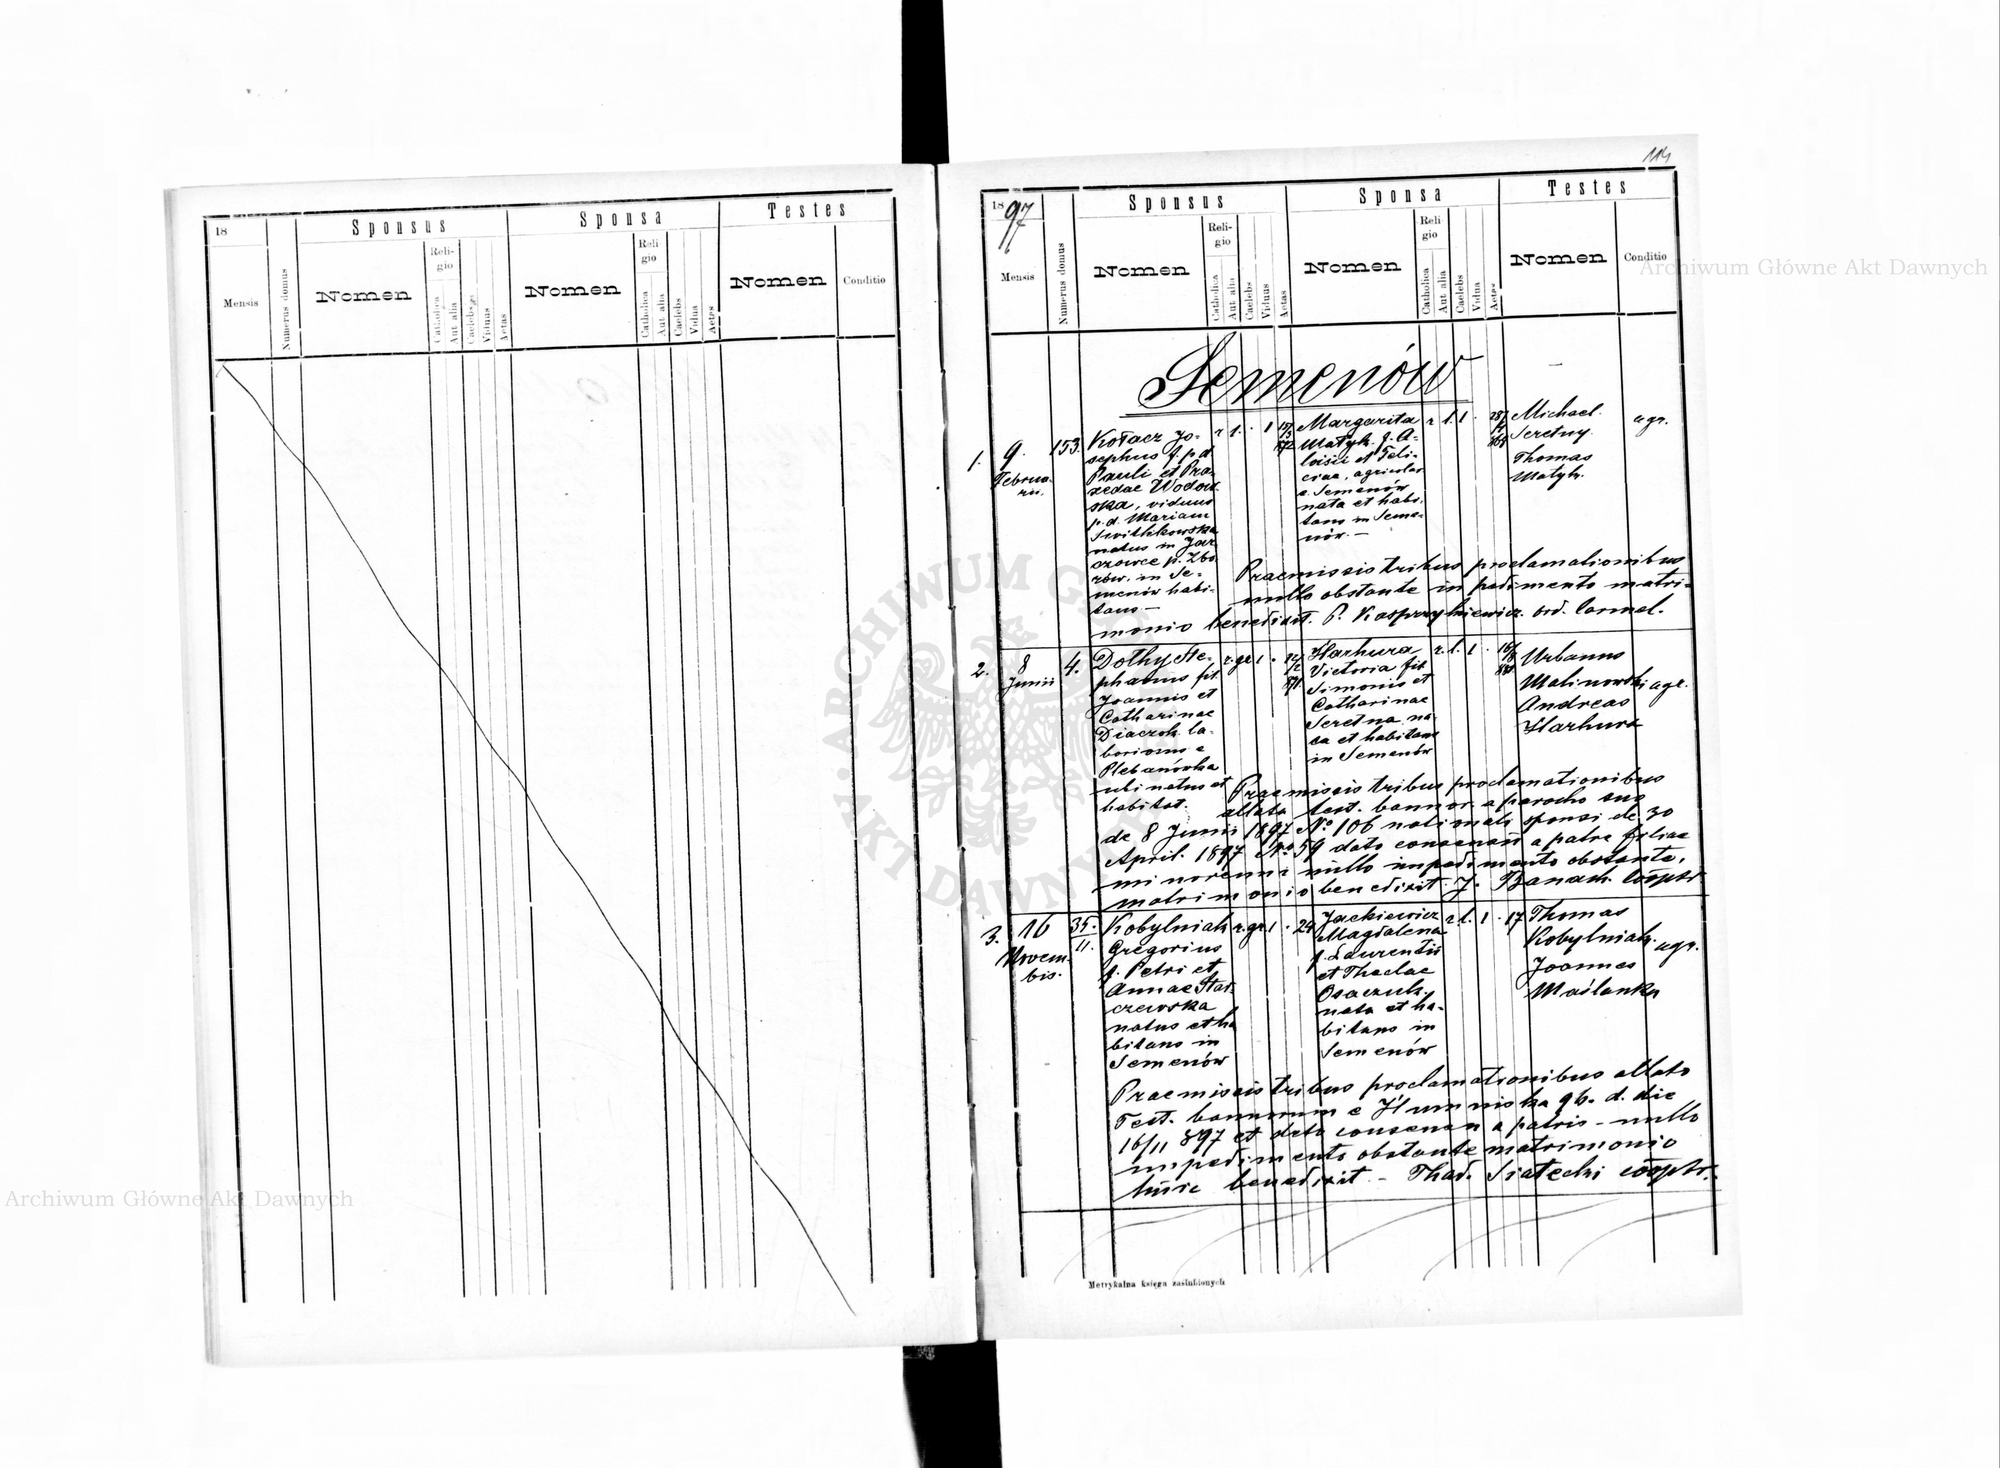 18
Sponsus
Sponsa
Testes
Mensis
Numerus domus
Nomen
Religio
Catholica
Aut alia
Caelebs
Viduus
Aetas
Nomen
Religio
Catholica
Aut alia
Caelebs
Vidua
Aetas
Nomen
Conditio
114
1897
Sponsus
Sponsa
Testes
Mensis
Numerus domus
Nomen
Religio
Catholica
Aut alia
Caelebs
Viduus
Aetas
Nomen
Religio
Catholica
Aut alia
Caelebs
Vidua
Aetas
Nomen
Conditio
Semenów
1.
9.
Februa-
rii.
153.
Kołacz Jo-
sephus f. p. d.
Pauli et Pra-
xedae Wodow-
ska, viduus
p. d. Mariam
natus in Jar-
czowce p. Zbo-
rów, in Se-
menów habi-
tans —
r. l. 1
Margarita
Matyk f. A-
loisii et Feli-
ciae, agricolar
e Semenów
nata et habi-
tans in Seme-
nów. —
r. l. 1
Michael
Seretny
Thomas
Matyk.
agr.
Praemissis tribus proclamationibus
nullo obstante impedimento matri-
monio benedixit. P. Kasprzykiewicz. ord. Carmel.
2.
8
Junii
4.
Dothy Ste-
phanus fil.
Joannis et
Catharinae
Diaczok la-
boriosus e
Plebanówka
ubi natus et
habitat.
r. gr. 1
Harhura
Victoria fil.
Simonis et
Catharinae
Seretna na-
ta et habitans
in Semenów
r. l. 1
Urbanus
Malinowski agr.
Andreas
Harhura
Praemissis tribus proclamationibus
allato test. bannor. a parocho suo
de 8 Junii 1897 No 106 nationali sponsi de 30
April. 1897 No 59 dato consensu a patre filiae
minorenni nullo impedimento obstante,
matrimonio benedixit J. Banach. coop.
3.
16
Novem-
bis.
35.
11.
Kobylniak
Gregorius
f. Petri et
Annae Star-
czewska
natus et ha
bitans in
Semenów
r. gr. 1 . 24
Jackiewicz
Magdalena
f. Laurentii
et Theclae
Osaczuk.
nata et ha-
bitans in
Semenów
r. l. 1 . 17
Thomas
Kobylniak.
Joannes
Maślanka
agr.
Praemissis tribus proclamationibus allato
Test. bannorum e Humniska gb. d. die
16/11 897 et dato consensu a patris - nullo
impedimento obstante matrimonio
huic benedixit - Thad. Siatecki coop.
Metrykalna księga zaślubionych
Archiwum Główne Akt Dawnych
Archiwum Główne Akt Dawnych
ARCHIWUM GŁÓWNE AKT DAWNYCH